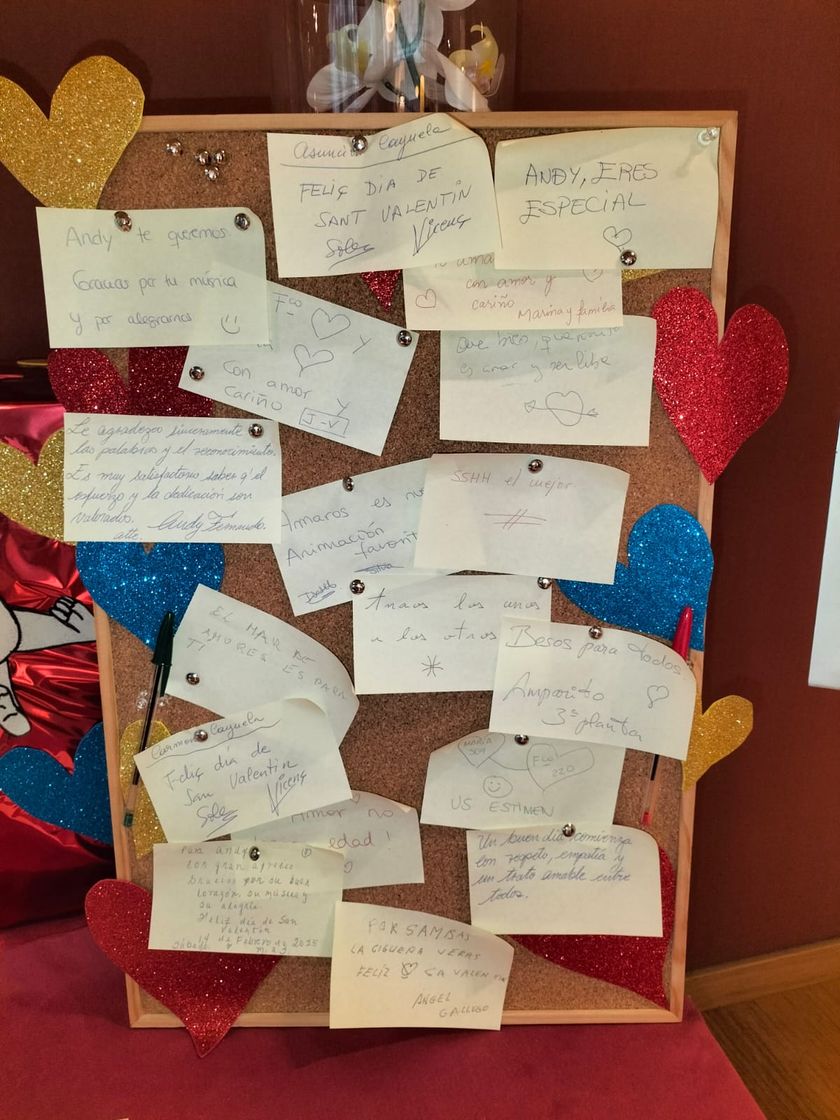 Asunción Cayuela
FELIÇ DIA DE
SANT VALENTIN
Vicenç
ANDY, ERES
ESPECIAL
Andy te queremos
Gracias por tu música
y por alegrarnos
con amor y
cariño Marina y familia
Fco
y
Con amor y
cariño J-V
es amar y ser libre
Le agradezco sinceramente
las palabras y el reconocimiento.
Es muy satisfactorio saber q' el
esfuerzo y la dedicación son
valorados. Andy Fernando.
atte.
SSHH el mejor
Amaros es nu
Animación
favorit
Amaos los unos
a los otros
EL MAR DE
AMORES ES PARA
TI
Besos para todos
Amparito
3ª planta
Carmona Cayuela
Feliç dia de
San Valentin
Vicenç
MARIA
504
Fco
220
US ESTIMEN
Amor no
edad!
Un buen día comienza
con respeto, empatía y
un trato amable entre
todos.
Para andy
con gran aprecio
Gracias por su buen
corazón su música y
su alegría.
Feliz día de San
Valentin
Sábado 14 de Febrero de 2025
POR SAMBAS
LA CIGUEÑA VERAS
FELIZ SA VALENTIN
ÁNGEL
GALLEGO